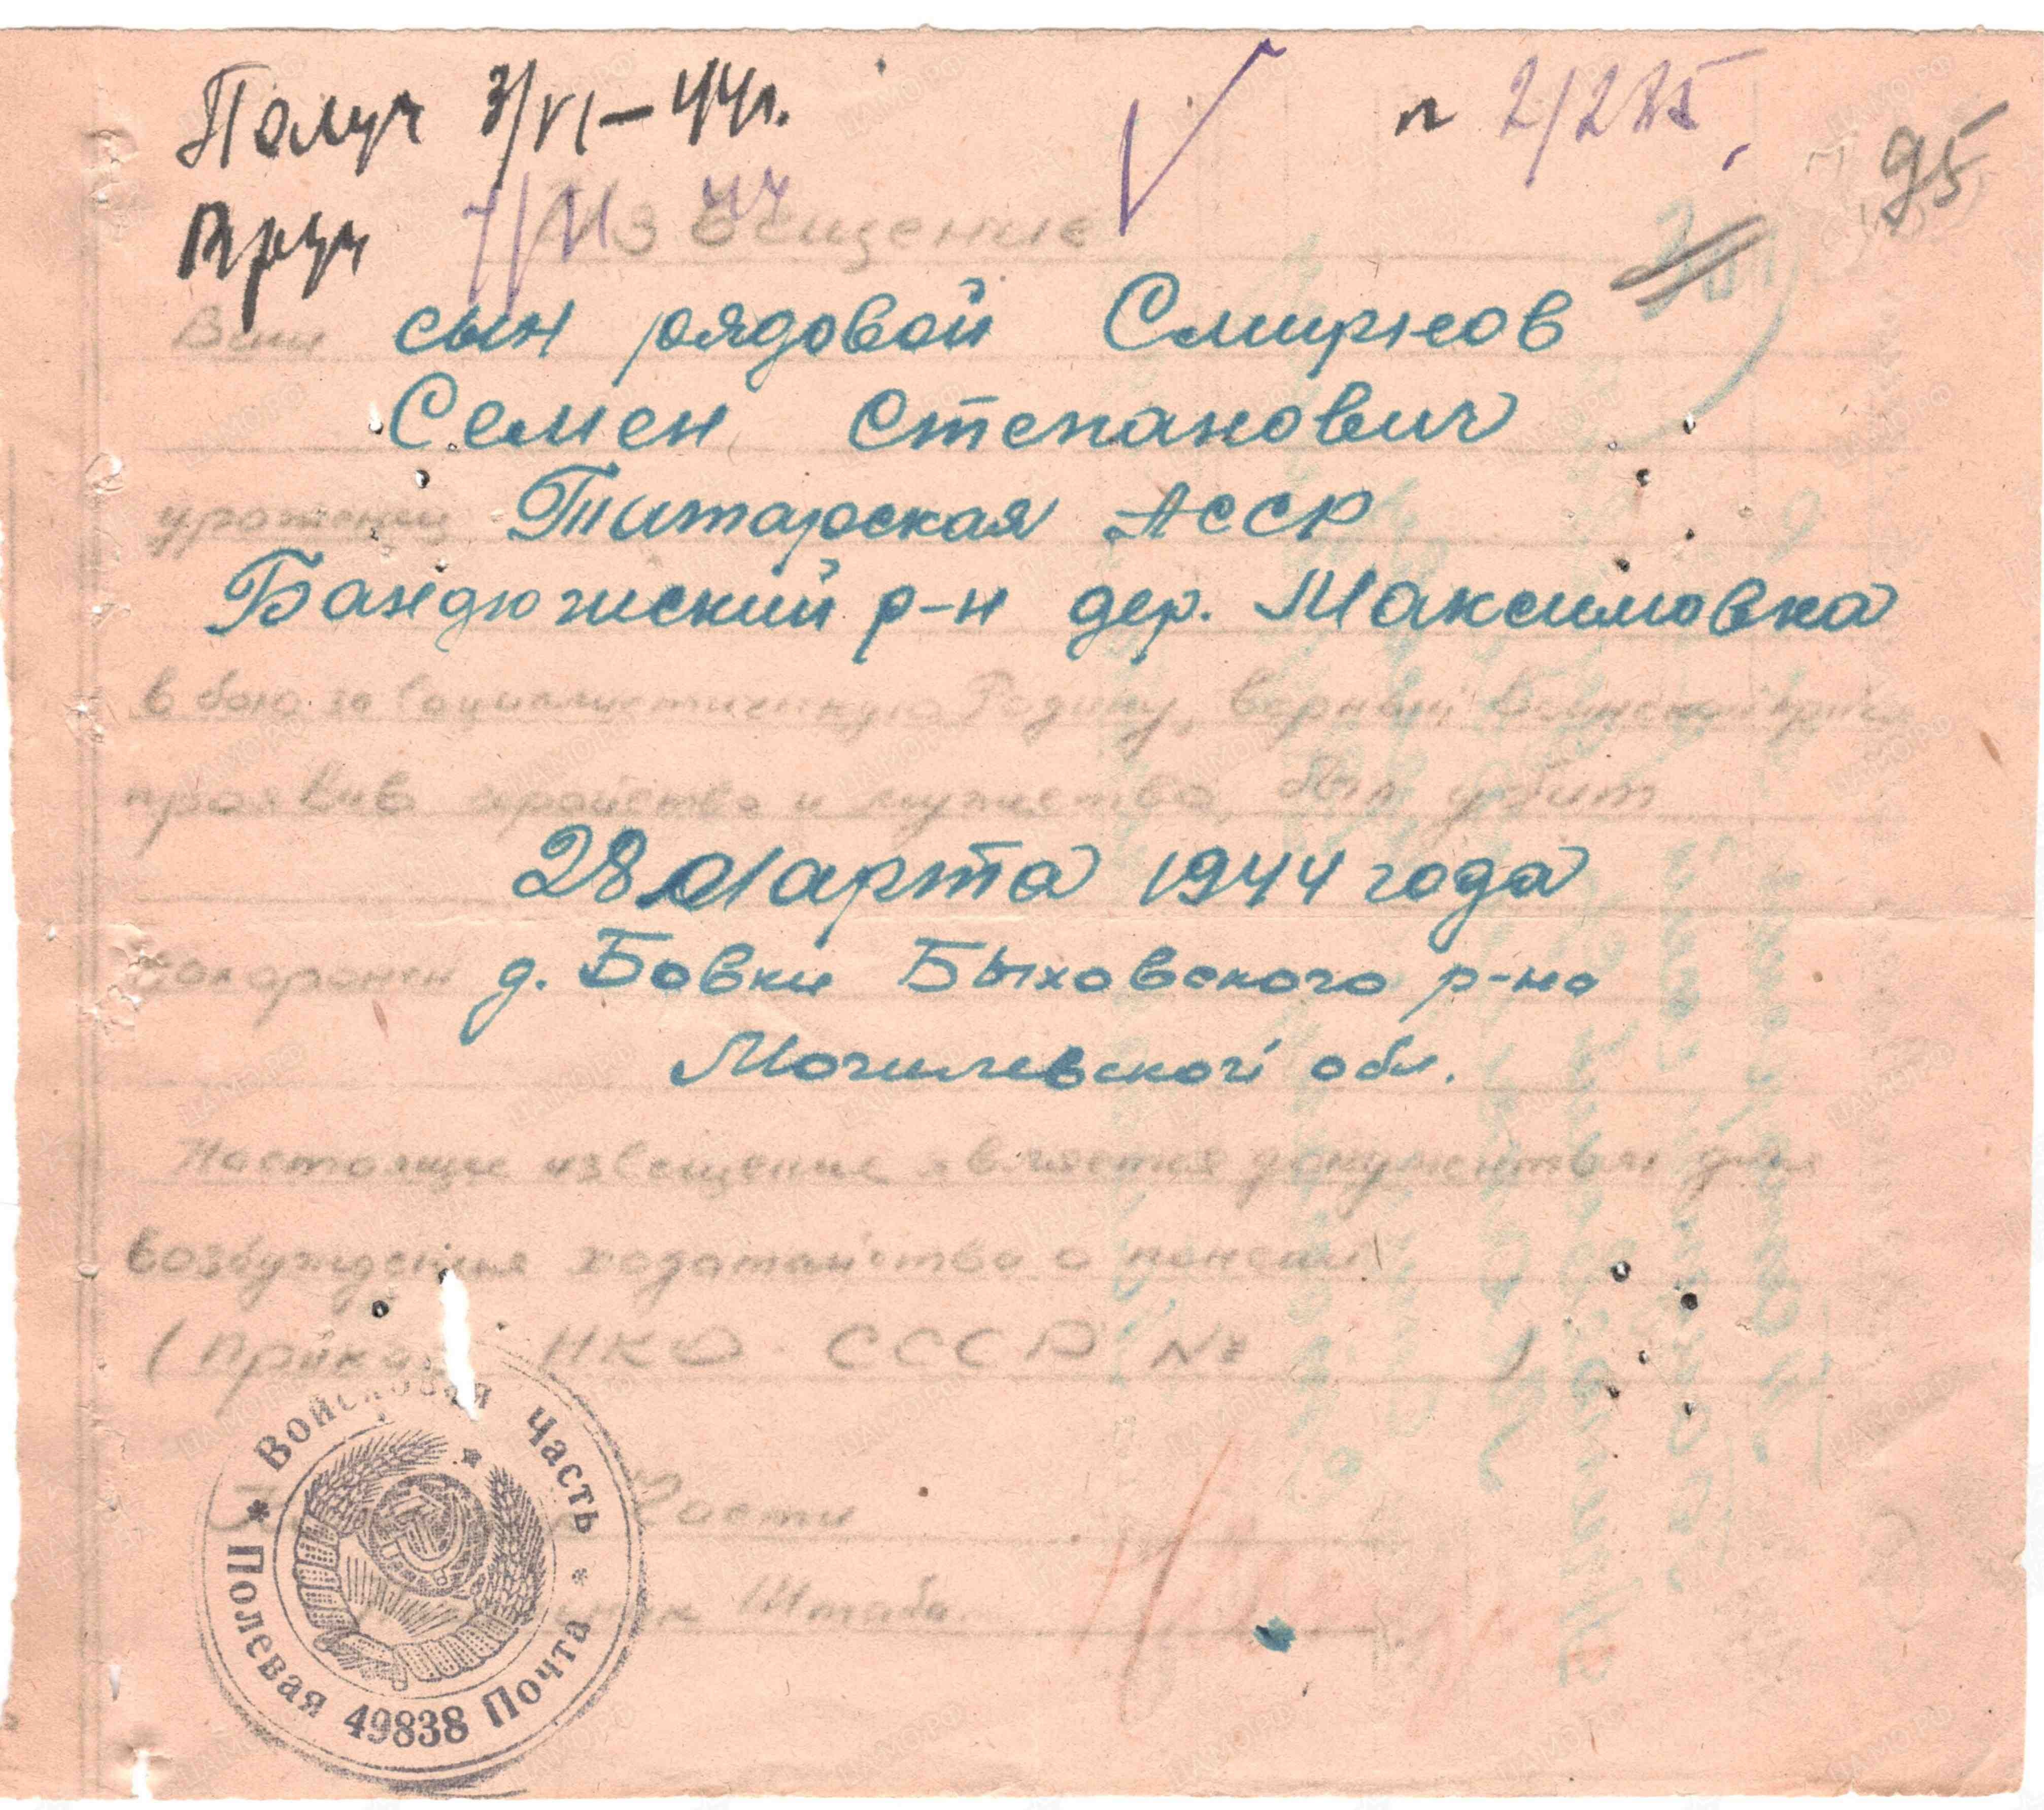 Получ 3/VI-44г. п 2/285.
95
Вруч 7/VI 44
Извещение
Ваш сын рядовой Смирнов
Семен Степанович
уроженец Титарская АССР
Бандюжский р-н дер. Максимовка
в бою за Социалистическую Родину, верный Воинской
проявив геройство и мужество, был убит
28 Марта 1944 года
похоронен д. Бовки Быховского р-на
Могилевской обл.
Настоящее извещение является документом для
возбуждения ходатайства о пенсии
(Приказ НКО СССР № )
Части
Штаба
Войсковая Часть
* Полевая 49838 Почта *